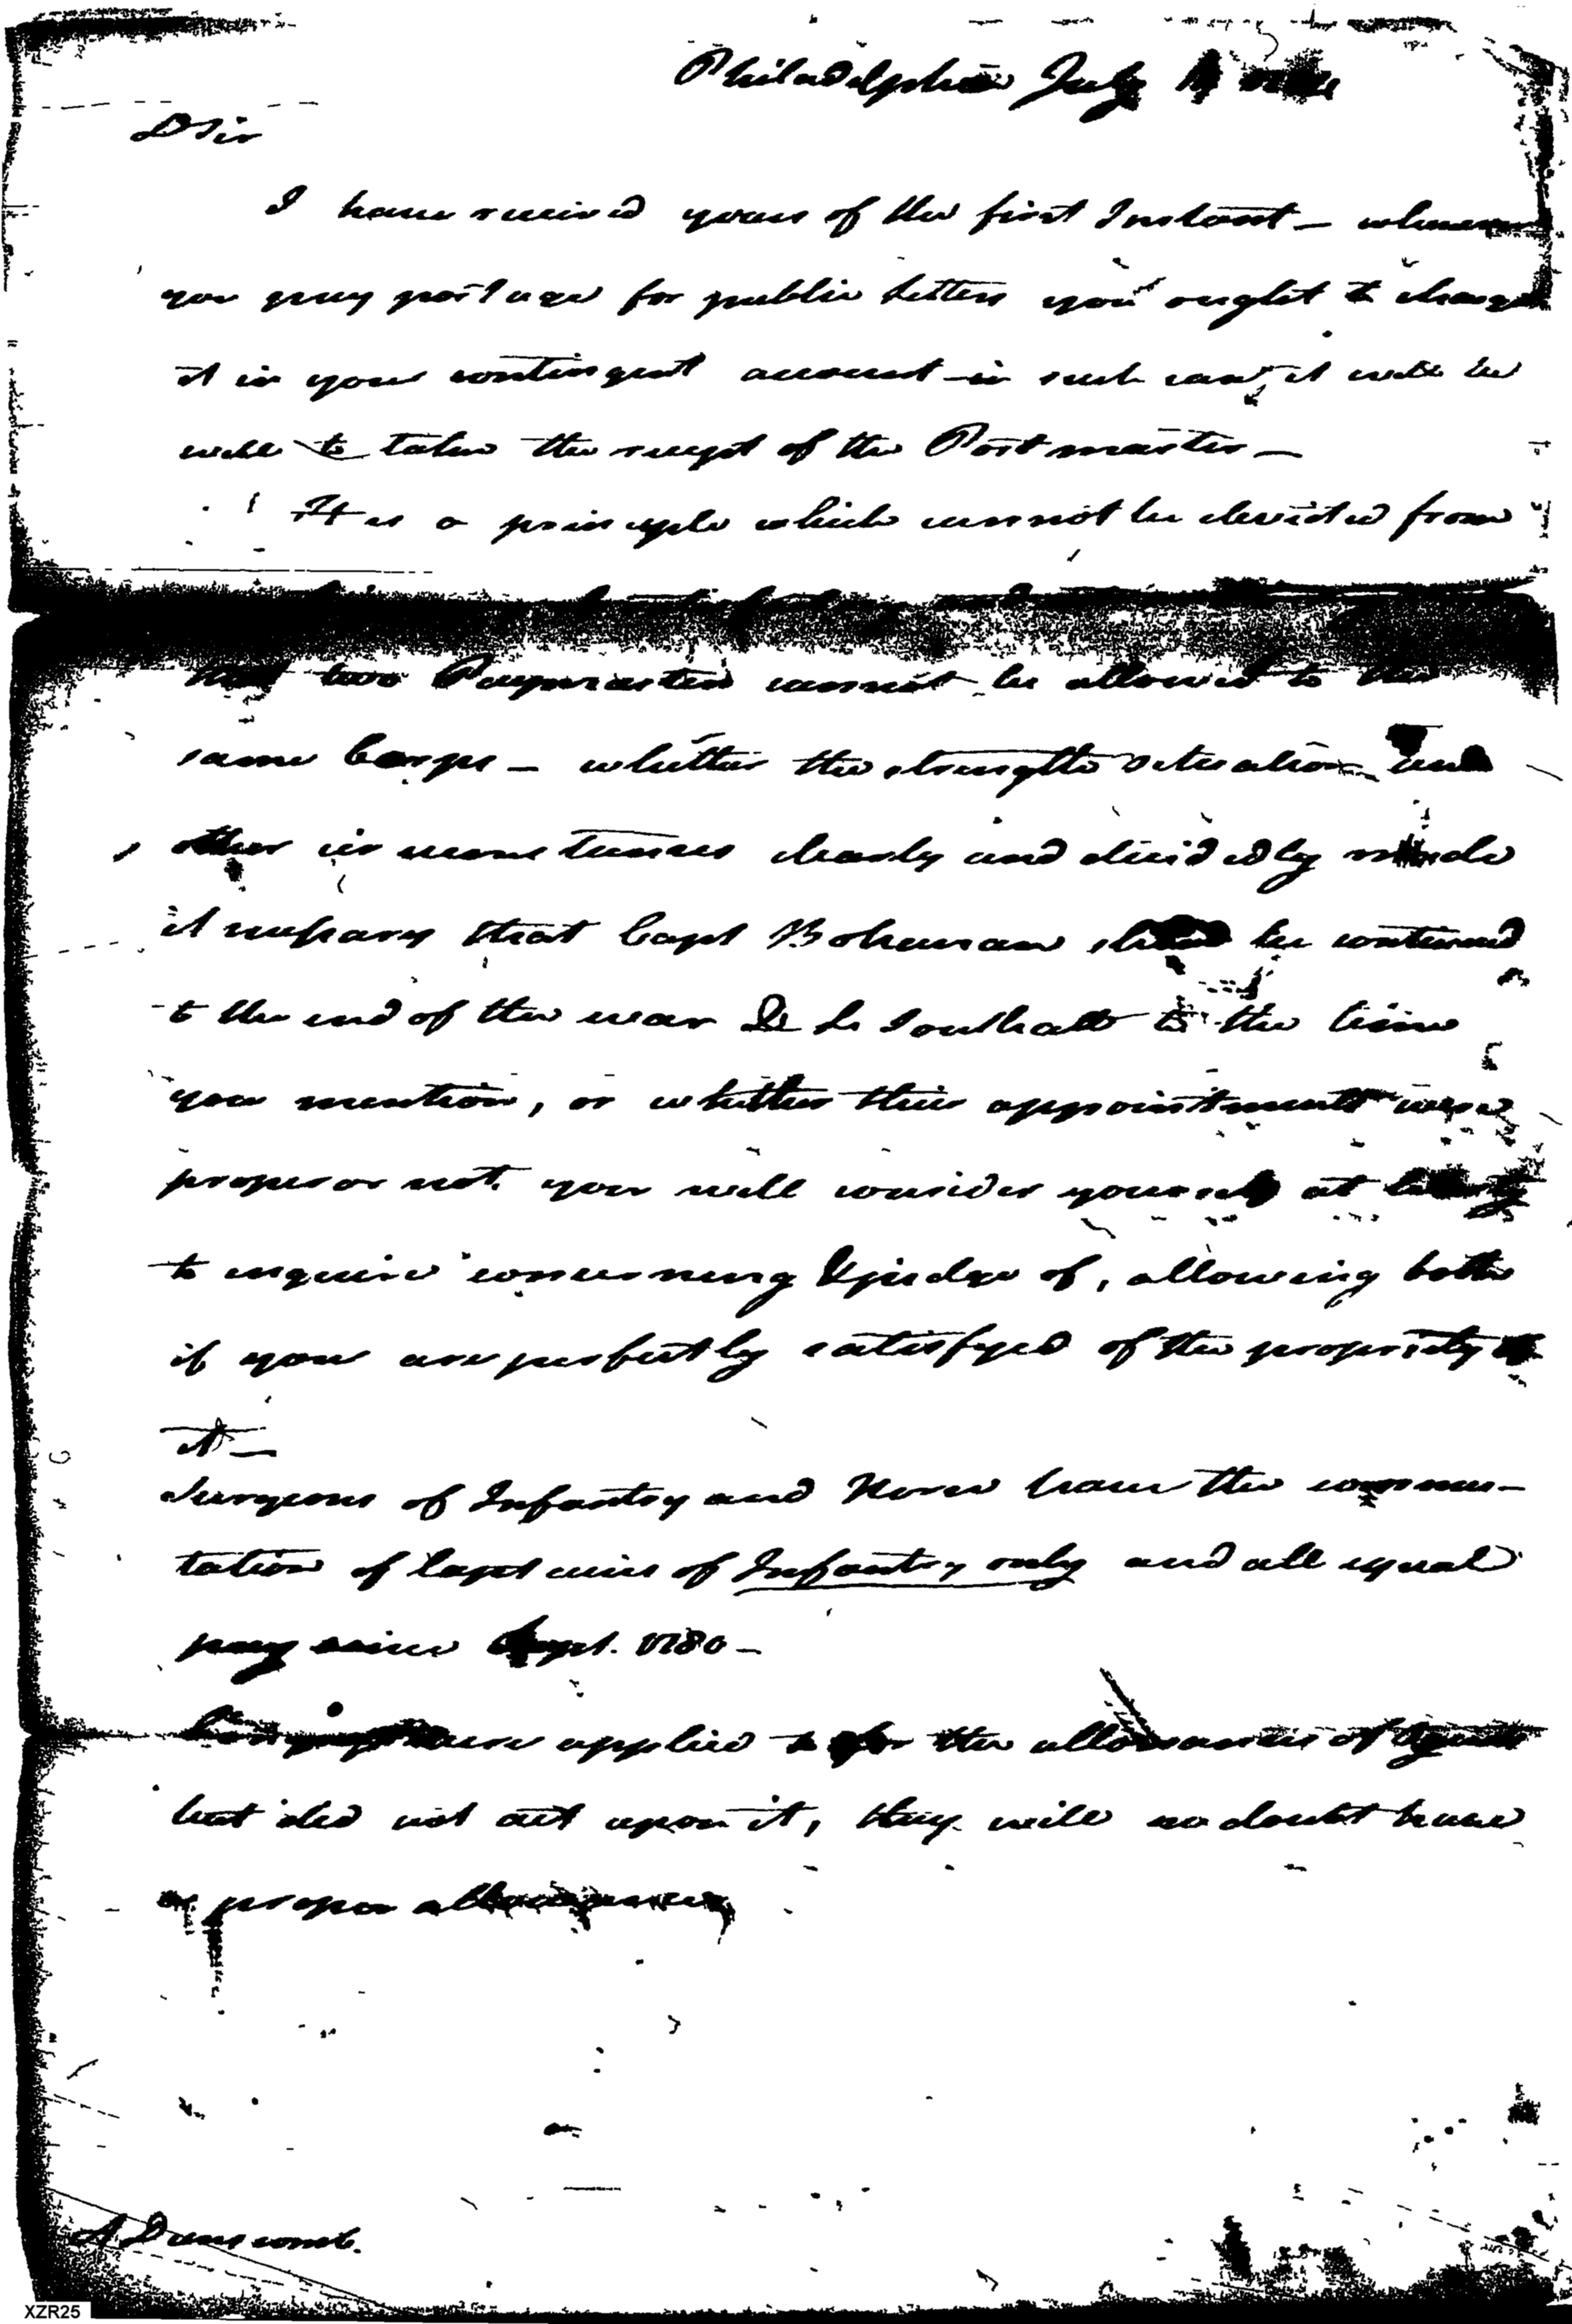 Philadelphia July
D Sir
I have received yours of the first Instant – whenever
you pay postage for public Letters you ought to charge
it in your contingent account – in such case, it will be
well to take the receipt of the Postmaster –
It is a principle which cannot be deviated from
that two Paymasters cannot be allowed to the
same Corps – whether the strength situation and
other circumstances clearly and decidedly made
it necessary that Capt Bohannan should be continued
to the end of the war & Lt Southall to the time
you mention, or whether their appointments were
proper or not, you will consider yourself at liberty
to enquire concerning & judge of, allowing both
if you are perfectly satisfyed of the propriety of
it –
Surgeons of Infantry and Horse have the commu-
tation of Captains of Infantry only and all equal
pay since Sept. 1780 –
Congress were applied to for the allowances of Agents
but did not act upon it, they will no doubt have
a proper allowance
A Dunscomb.
XZR25